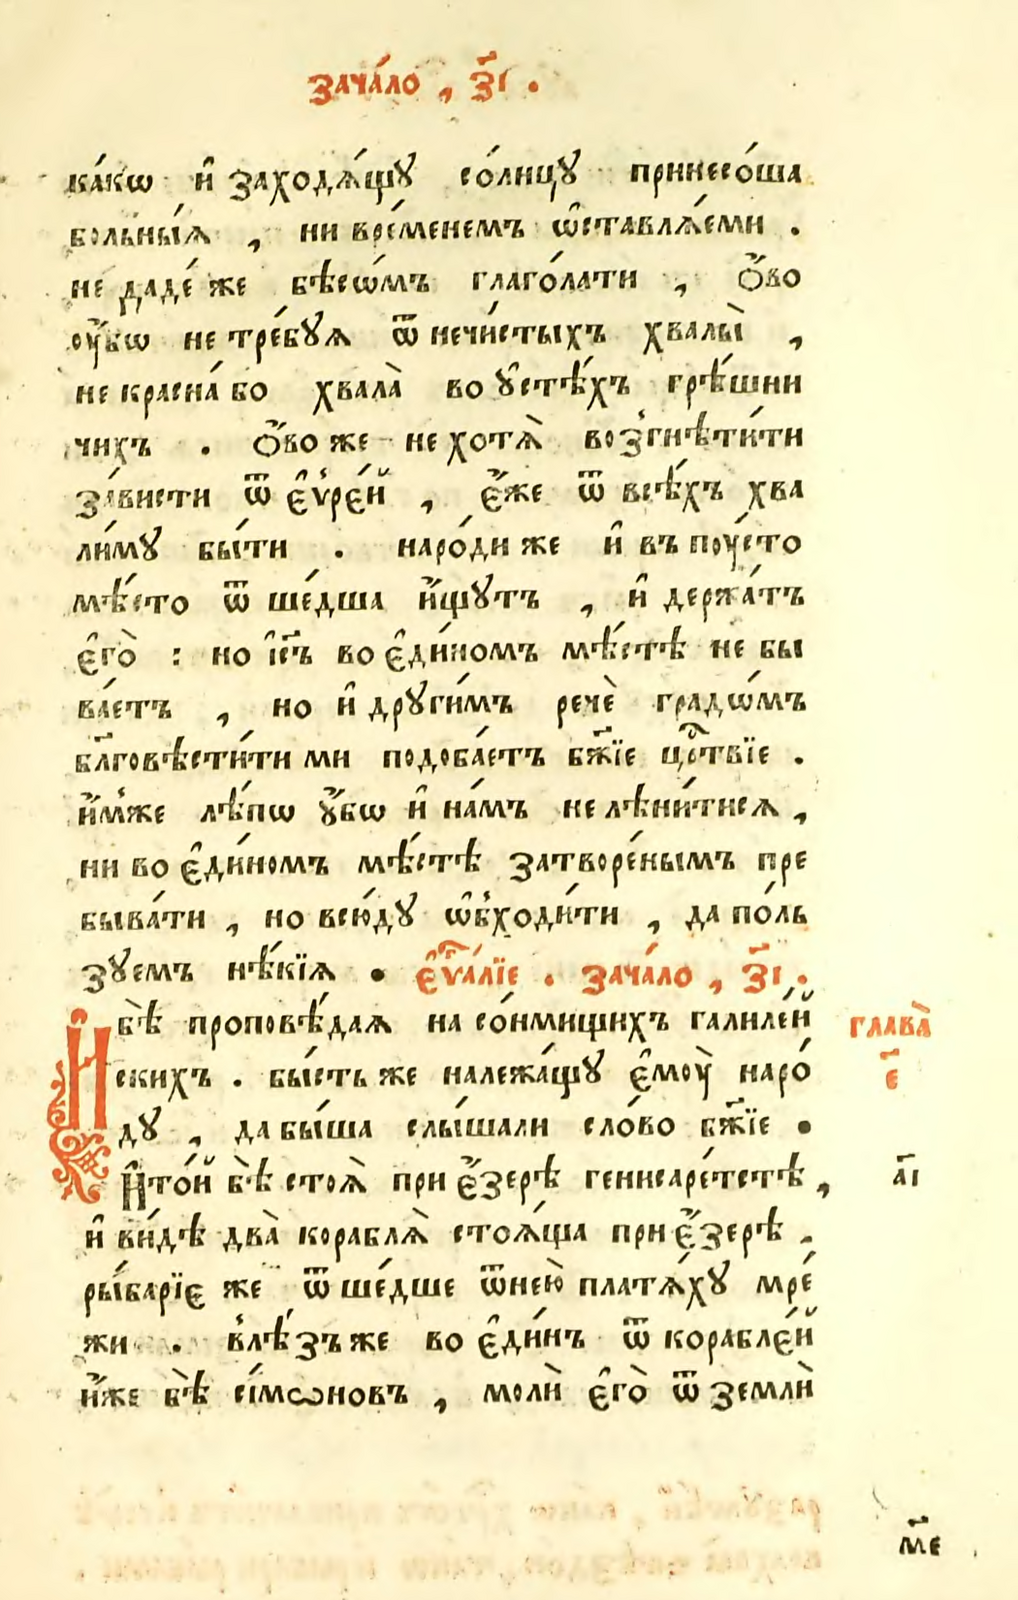 зача́ло , з҃і .
ка́кѡ и҆ заходѧ́щꙋ со́лнцꙋ принесо́ша
больны́ѧ , ни вре́менемъ ѡ҆ставлѧ́еми .
не даде́ же бѣсѡ́мъ глаго́лати , ѻ҆́во
оу҆́бѡ не тре́бꙋѧ ѿ нечи́стыхъ хвалы̀ ,
не красна́ бо хвала̀ во ᲂу҆стѣ́хъ грѣ́шни
чихъ . ѻ҆́во же не хотѧ̀ возгнѣти́ти
за́висти ѿ є҆ѵре́й , є҆́же ѿ всѣ́хъ хва
ли́мꙋ бы́ти . наро́ди же и҆ въ пꙋ́сто
мѣ́сто ѿ ше́дша и҆́щꙋтъ , и҆ держа́тъ
є҆го̀ : но і҆с҃ъ во є҆ди́номъ мѣ́стѣ не бы
ва́етъ , но и҆ дрꙋги́мъ речѐ градѡ́мъ
бл҃говѣсти́ти ми подоба́етъ бж҃їе цр҇твїе .
и҆́мже лѣ́пѡ ᲂу҆́бѡ и҆ на́мъ не лѣни́тисѧ ,
ни во є҆ди́номъ мѣ́стѣ затворе́нымъ пре
быва́ти , но всю́дꙋ ѡ҆бходи́ти , да по́ль
зꙋемъ нѣ́кїѧ . є҆ѵⷢ҇а́лїе . зача́ло , з҃і .
И бѣ̀ проповѣ́даѧ на со́нмищихъ галиле́й
скихъ . бы́сть же належа́щꙋ є҆мꙋ̀ наро́
дꙋ , да бы́ша слы́шали сло́во бж҃їе .
И҆ то́й бѣ̀ стоѧ̀ при є҆́зерѣ генисаре́тстѣ ,
и҆ ви́дѣ два̀ кораблѧ̀ стоѧ́ща при є҆́зерѣ .
ры́барїє же ѿ ше́дше ѿ нею̀ платѧ́хꙋ мре́
жи . влѣ́зъ же во є҆ди́нъ ѿ корабле́й
и҆́же бѣ̀ сі́мѡновъ , молѝ є҆го̀ ѿ землѝ
глава̀
є҃
а҃і
м҃е